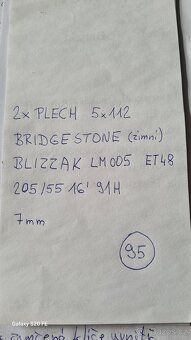 2x PLECH 5x112
BRIDGESTONE (zimní)
BLIZZAK LM005 ET48
205/55 16' 91H
7mm
95
Galaxy S20 FE